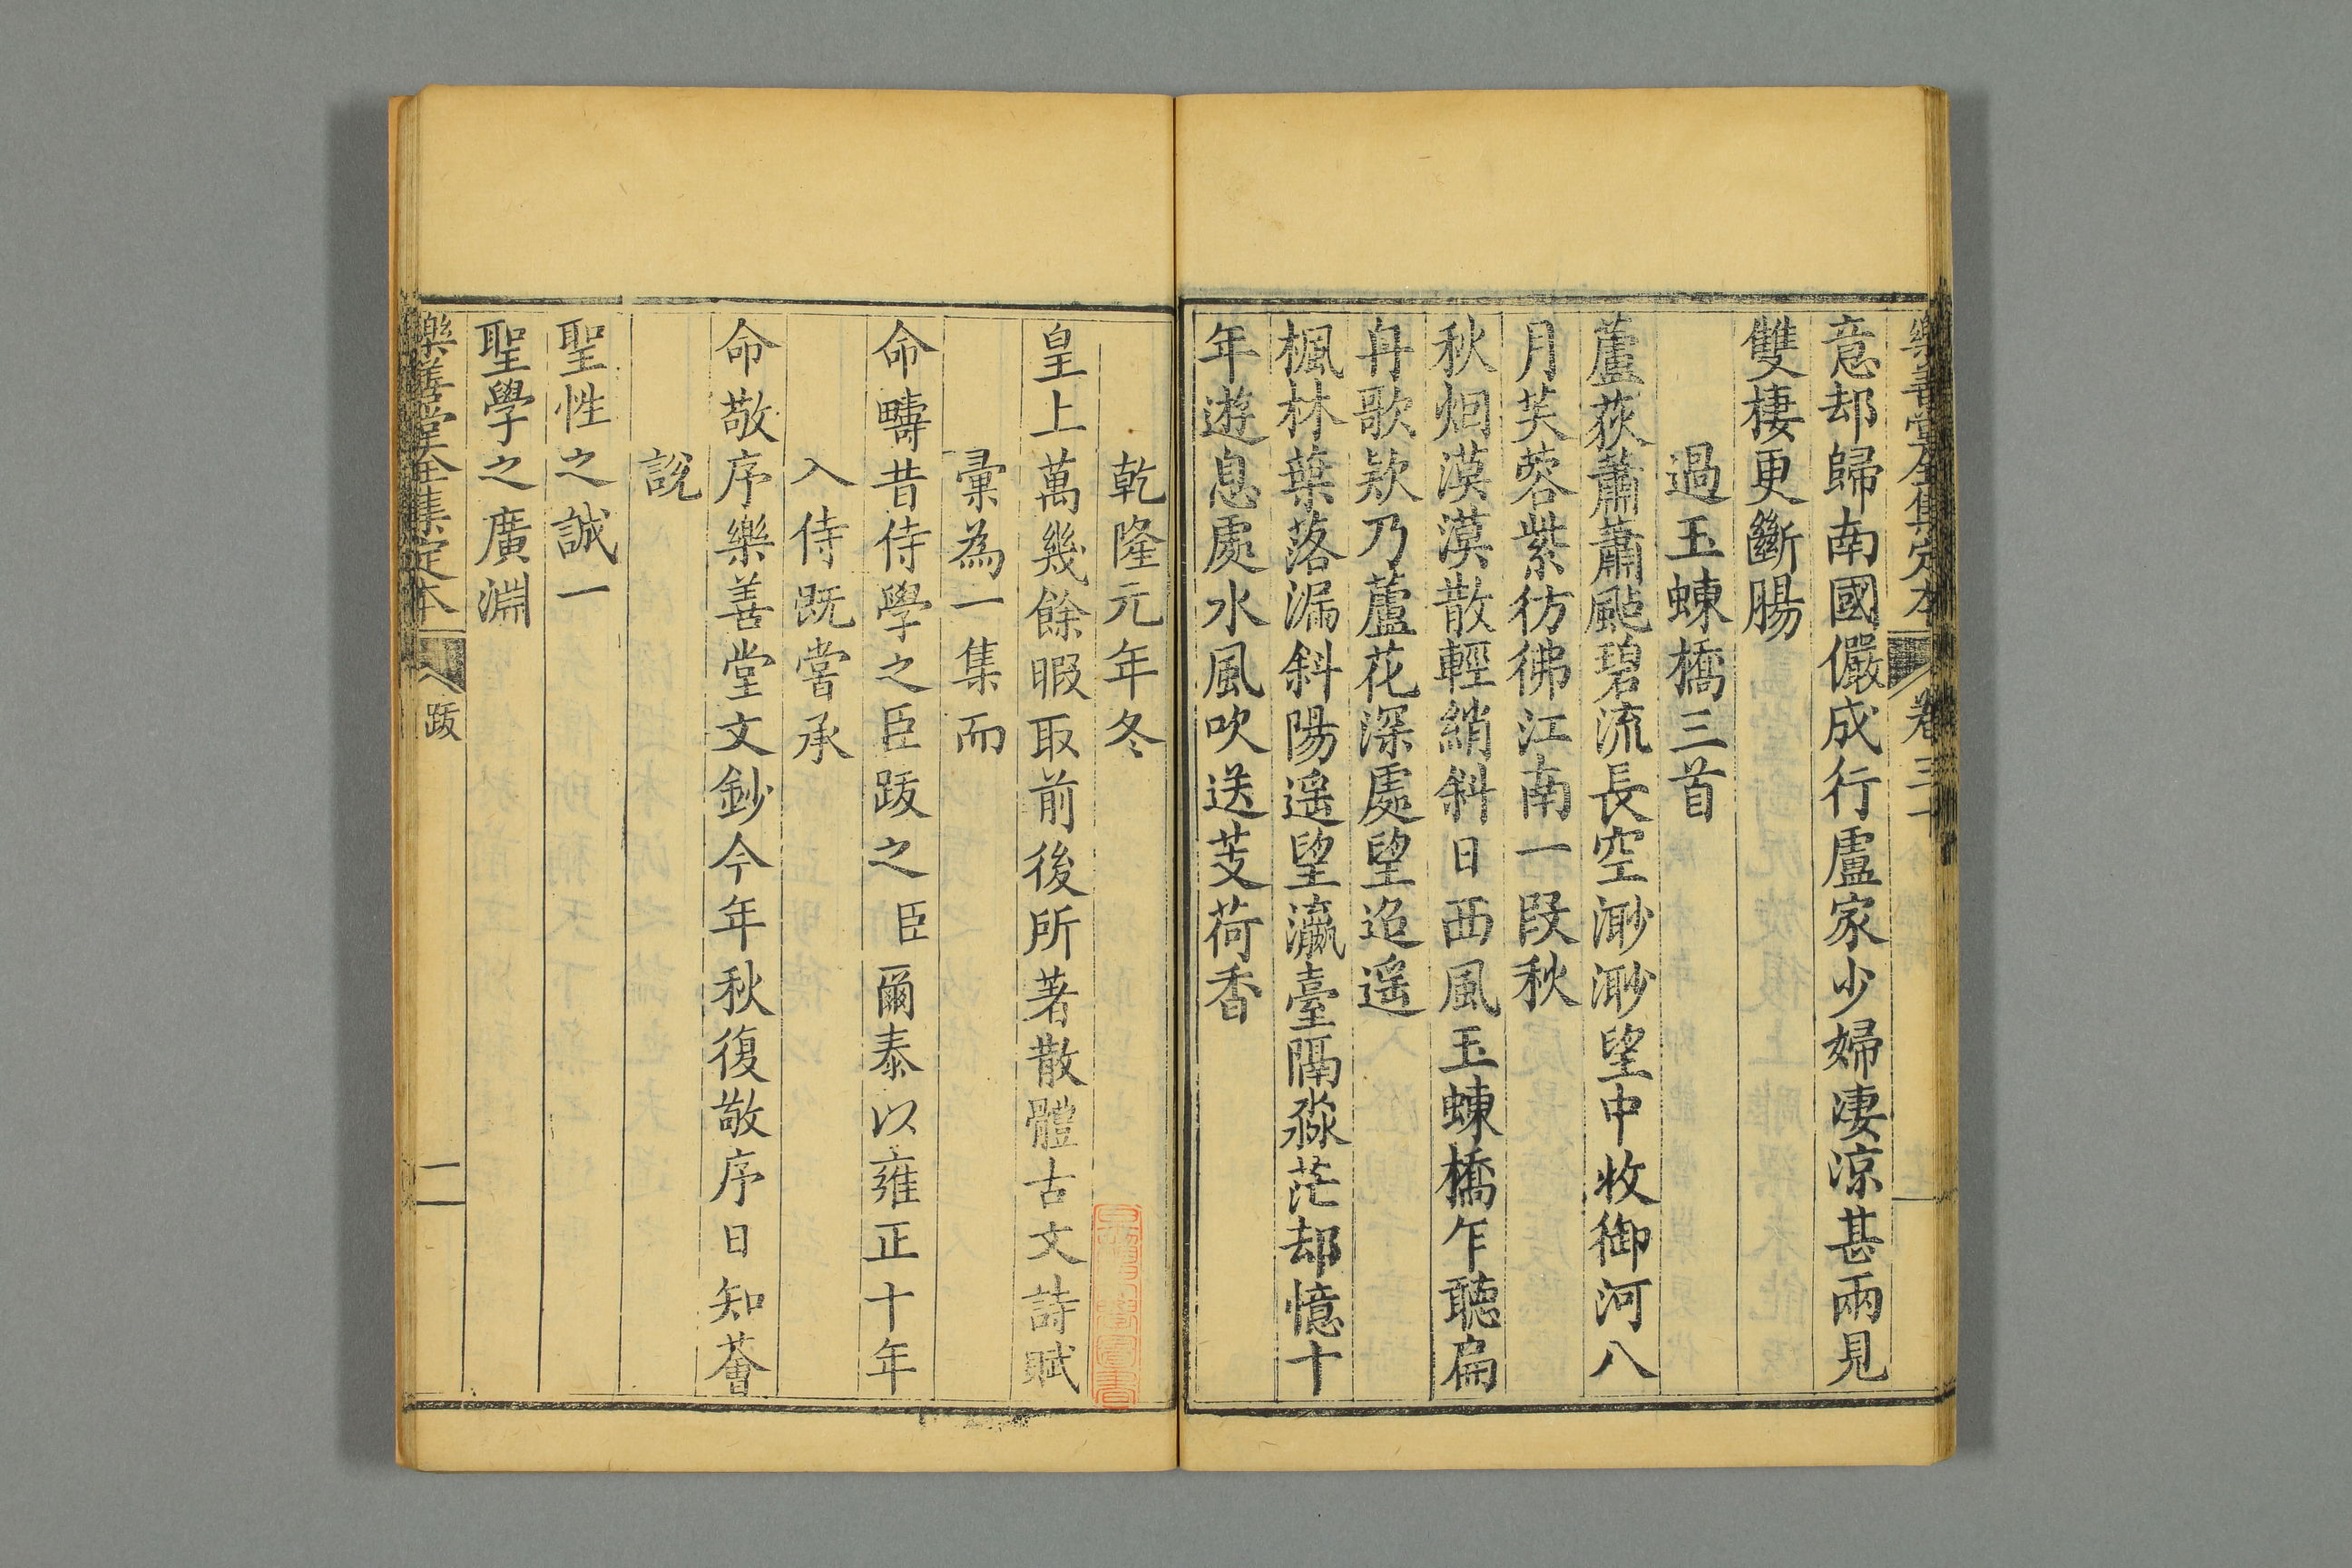 樂善堂全集定本 卷三十
意却歸南國儼成行盧家少婦凄涼甚兩見
雙棲更斷腸
過玉蝀橋三首
蘆荻蕭蕭颭碧流長空渺渺望中收御河八
月芙蓉紫彷彿江南一段秋
秋烟漠漠散輕綃斜日西風玉蝀橋乍聽扁
舟歌欸乃蘆花深處望迢遥
楓林葉落漏斜陽遥望瀛臺隔淼茫却憶十
年遊息處水風吹送芰荷香
乾隆元年冬
皇上萬幾餘暇取前後所著散體古文詩賦
彚為一集而
命疇昔侍學之臣跋之臣爾泰以雍正十年
入侍既嘗承
命敬序樂善堂文鈔今年秋復敬序日知薈
說
聖性之誠一
聖學之廣淵
樂善堂全集定本 跋 一